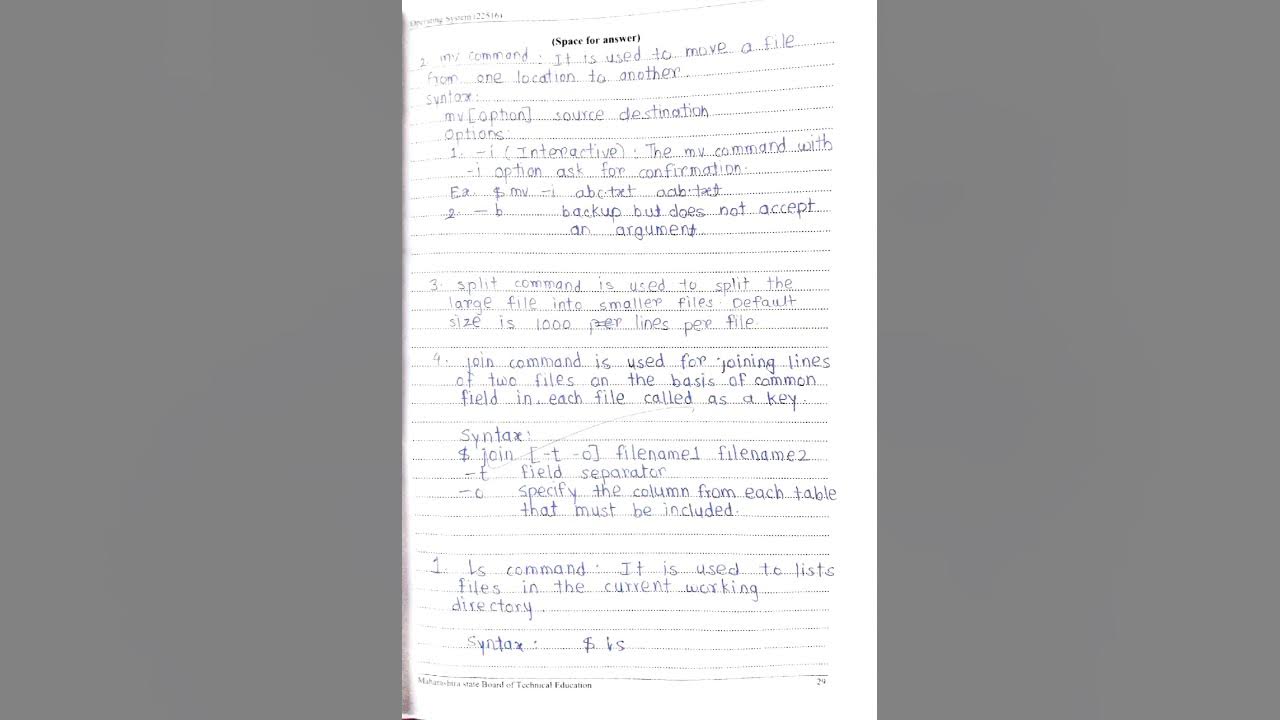 Operating System (22516)
(Space for answer)
2. mv command : It is used to move a file
from one location to another.
Syntax:
mv [option] source destination
Options:
1. -i (Interactive). The mv command with
-i option ask for confirmation.
Ex. $ mv -i abc.txt
2. - b backup but does not accept
an argument.
3. split command is used to split the
large file into smaller files. Default
size is 1000 per lines per file.
4. join command is used for joining lines
of two files on the basis of common
field in each file called as a key.
Syntax:
$ join [-t -o] filename1 filename2
-t field separator
-o specify the column from each table
that must be included.
1. Ls command. It is used to lists
files in the current working
directory.
Syntax: $ ls
Maharashtra state Board of Technical Education 29